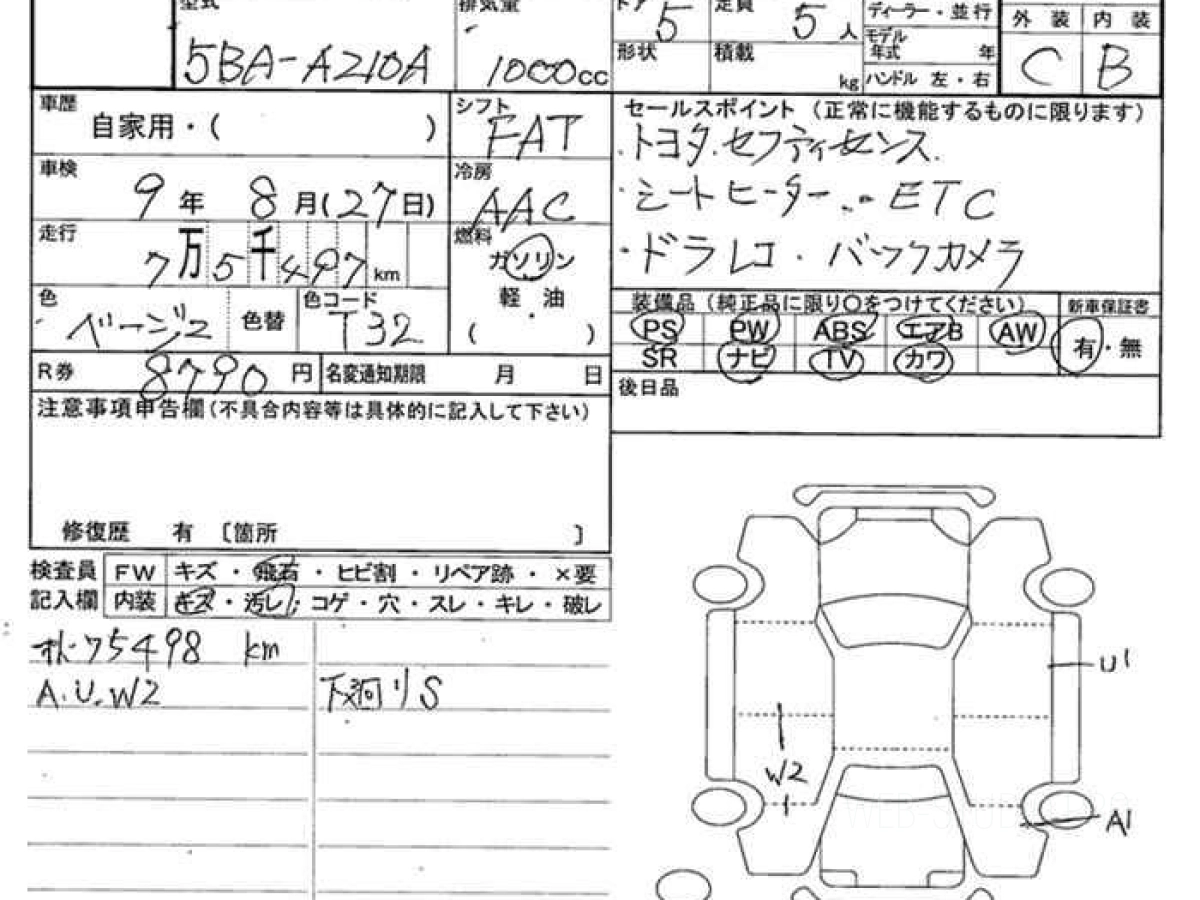 型式
5BA-A210A
排気量
1000cc
ドア 5
定員 5人
形状
積載 kg
ディーラー・並行
モデル年式 年
ハンドル 左・右
外装 内装
C B
車歴
自家用・( )
シフト
FAT
車検
9年 8月(27日)
冷房
AAC
走行
7万5千497km
燃料
ガソリン
軽油
( )
色
ベージュ2
色替
色コード
T32
R券 8790円
名変通知期限 月 日
注意事項申告欄(不具合内容等は具体的に記入して下さい)
修復歴 有 〔箇所 〕
セールスポイント(正常に機能するものに限ります)
・トヨタ・セフティセンス
・シートヒーター ETC
・ドラレコ・バックカメラ
装備品(純正品に限り○をつけてください)
新車保証書
PS PW ABS エアB AW
有・無
SR ナビ TV カワ
後日品
検査員記入欄
FW キズ・飛石・ヒビ割・リペア跡・×要
内装 キズ・汚レ・コゲ・穴・スレ・キレ・破レ
75498 km
A.U.W2
下廻りS
U1
W2
A1